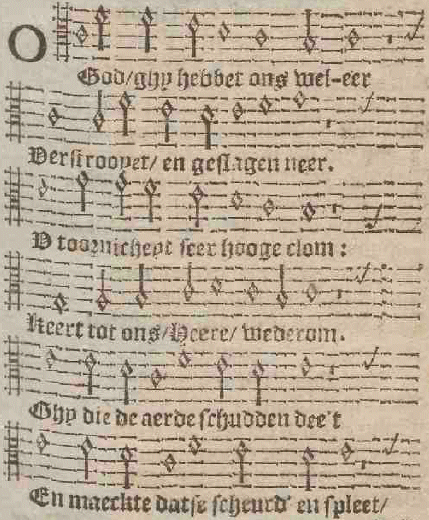 O
God/ghy hebbet ons wel-eer
Verstroopet/ en geslagen neer.
V toornicheyt seer hooge clom:
Keert tot ons/Heere/ wederom.
Ghy die de aerde schudden dee't
En maeckte datse scheurd' en spleet/